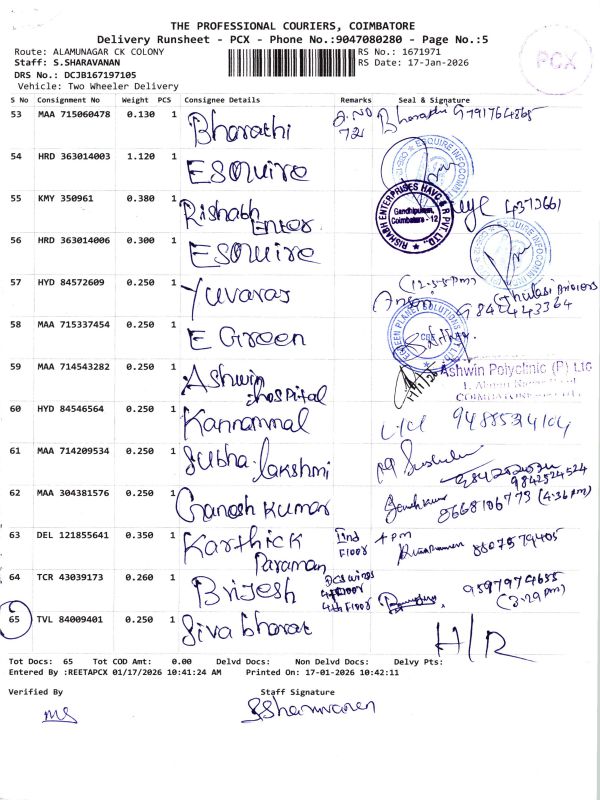 THE PROFESSIONAL COURIERS, COIMBATORE
Delivery Runsheet - PCX - Phone No.:9047080280 - Page No.:5
Route: ALAMUNAGAR CK COLONY RS No.: 1671971
Staff: S.SHARAVANAN RS Date: 17-Jan-2026
DRS No.: DCJB167197105
Vehicle: Two Wheeler Delivery
PCX
S No Consignment No Weight PCS Consignee Details Remarks Seal & Signature
53 MAA 715060478 0.130 1 Bharathi D.NO 721 Bharathi G 791764865
54 HRD 363014003 1.120 1 ESQUIRE
55 KMY 350961 0.380 1 Rishabh Enter
RISHABH ENTERPRISES HAVC & R PVT LTD.,
Gandhipuram,
Coimbatore - 12
56 HRD 363014006 0.300 1 ESQUIRE
57 HYD 84572609 0.250 1 Yuvaraj (12:55pm)
58 MAA 715337454 0.250 1 E Green
GREEN PLANET SOLUTIONS PVT LTD
CBE
59 MAA 714543282 0.250 1 Ashwin Hospital
Ashwin Polyclinic (P) LTD
60 HYD 84546564 0.250 1 Kannammal
61 MAA 714209534 0.250 1 Subha lakshmi
9842524524
62 MAA 304381576 0.250 1 Ganesh Kumar 8668106773 (4:36pm)
63 DEL 121855641 0.350 1 Karthick Paraman IInd Floor 4 pm 8807579405
64 TCR 43039173 0.260 1 Brijesh 4th Floor 9597974655
(2:29pm)
65 TVL 84009401 0.250 1 Siva bharat H/R
Tot Docs: 65 Tot COD Amt: 0.00 Delvd Docs: Non Delvd Docs: Delvy Pts:
Entered By :REETAPCX 01/17/2026 10:41:24 AM Printed On: 17-01-2026 10:42:11
Verified By Staff Signature
MS SSharavanan